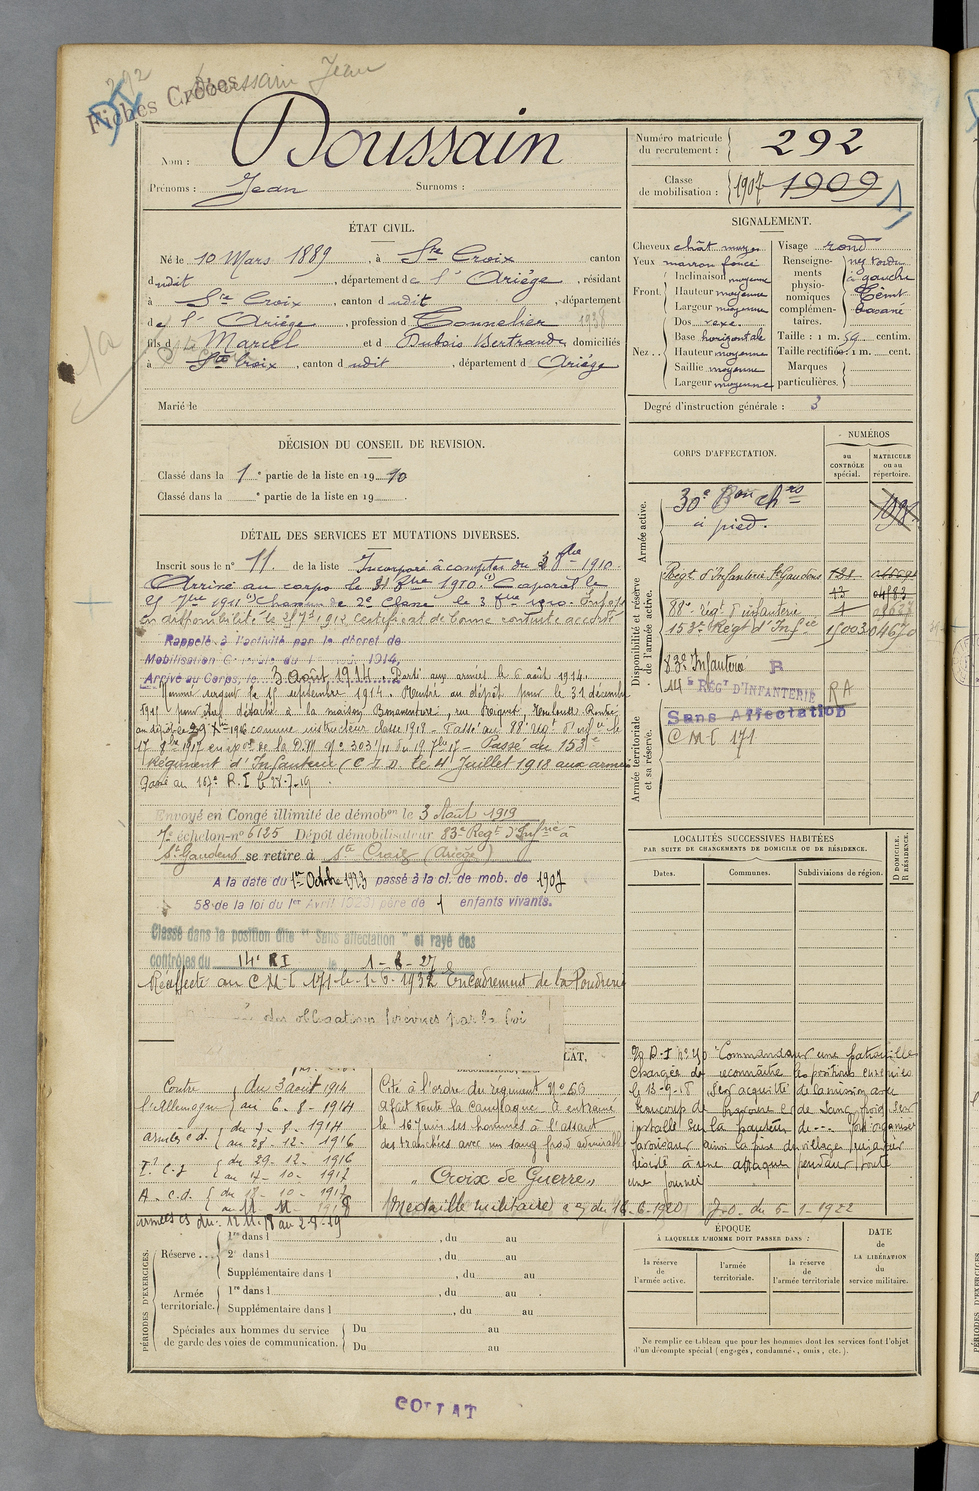 292 Boussain Jean
Fiches Croods
Nom : Boussain
Prénoms : Jean Surnoms :
Numéro matricule du recrutement : 292
Classe de mobilisation : 1907 1909
ÉTAT CIVIL.
Né le 10 Mars 1889, à Ste Croix canton
dudit, département de l'Ariége, résidant
à Ste Croix, canton dudit, département
de l'Ariége, profession de Tonnelier 1938
fils de Marcel et d Dubois Bertrande domiciliés
à Ste Croix, canton dudit, département d Ariége
Marié le
SIGNALEMENT.
Cheveux chât moyen
Yeux marron foncé
Front. Inclinaison moyenne
Hauteur moyenne
Largeur moyenne
Nez... Dos vexe
Base horizontale
Hauteur moyenne
Saillie moyenne
Largeur moyenne
Visage rond
Renseignements physionomiques complémentaires. nez tordu à gauche Teint basané
Taille : 1 m. 59 centim.
Taille rectifiée : 1 m. cent.
Marques particulières.
Degré d'instruction générale : 3
DÉCISION DU CONSEIL DE REVISION.
Classé dans la 1e partie de la liste en 1910
Classé dans la e partie de la liste en 19
DÉTAIL DES SERVICES ET MUTATIONS DIVERSES.
Inscrit sous le n° 11. de la liste Incorporé à compter du 3 8bre 1910
Arrivé au corps le Caporal le
Chasseur de 2e Classe le
en disponibilité le Certificat de bonne conduite accordé
Rappelé à l'activité par le décret de
Mobilisation Générale du 1914,
Arrivé au Corps, le 3 Août 1914. Parti aux armées le 6 août 1914.
Nommé sergent le 15 septembre 1914. Rentré au dépôt pour le 31 décembre
1915 pour être détaché à la maison Bonaventure, rue Rasport, Toulouse. Rentré
au dépôt le 29 Xbre 1916 comme instructeur classe 1918 - Passé au 88e régt d'infie le
17 8bre 1917 en 303/11 du 19 7bre 17 - Passé au 153e
Régiment d'Infanterie (C.I.D. le 4 Juillet 1918 aux armées
Passé au R.I. le 28-7-19
Envoyé en Congé illimité de démobon le 3 Aout 1919
7e échelon-n° 6125 Dépôt démobilisateur 83e Regt d'Infrie à
St Gaudens se retire à Ste Croix (Ariége)
A la date du 1er Octbre 1923 passé à la cl. de mob. de 1907
58 de la loi du 1er Avril 1923) père de 1 enfants vivants.
Classé dans la position dite "Sans affectation" et rayé des
contrôles du 14e RI le 1-8-27
Réaffecté au C M I 171 le 1-6-1932 Encadrement de la Poudrerie
des obligations prévues par la loi
CORPS D'AFFECTATION.
NUMÉROS
au CONTRÔLE spécial.
MATRICULE ou au répertoire.
Armée active.
30e Bon chrs
à pied.
Disponibilité et réserve de l'armée active.
Regt d'Infanterie St Gaudens
88e régt d'infanterie
153e Régt d'Infie 15003 04670
83e Infanterie
14e RÉGT D'INFANTERIE RA
Sans Affectation
C M I 171
Armée territoriale et sa réserve.
LOCALITÉS SUCCESSIVES HABITÉES
PAR SUITE DE CHANGEMENTS DE DOMICILE OU DE RÉSIDENCE.
Dates.
Communes.
Subdivisions de région.
D DOMICILE. R RÉSIDENCE.
Contre l'Allemagne du 3 août 1914
au 6-8-1914
armées c.d. du 7-8-1914
au 28-12-1916
I.r C.I du 29-12-1916
au 17-10-1917
A.c.d. du 18-10-1917
au 11-11-1918
armées cs du 12.11.18 au 2-8-19
Cité à l'ordre du régiment N° 60
A fait toute la campagne. A entrainé
le 16 juin ses hommes à l'assaut
des tranchées avec un sang froid admirable
"Croix de Guerre"
Médaille militaire 16-6-1920 J.O. du 6-1-1922
Commandant une patrouille
chargée de reconnaitre les positions ennemies
le 13-9-18 s'est acquitté de la mission avec
beaucoup de bravoure et de sang froid.
installé sur la hauteur de ---
favorisant ainsi la prise du village qui avait
résisté à une attaque pendant toute
une journée
PÉRIODES D'EXERCICES.
Réserve... 1re dans l , du au
2e dans l , du au
Supplémentaire dans l , du au
Armée territoriale. 1re dans l , du au
Supplémentaire dans l , du au
Spéciales aux hommes du service de garde des voies de communication. Du au
Du au
ÉPOQUE
À LAQUELLE L'HOMME DOIT PASSER DANS :
la réserve de l'armée active.
l'armée territoriale.
la réserve de l'armée territoriale
DATE de LA LIBÉRATION du service militaire.
Ne remplir ce tableau que pour les hommes dont les services font l'objet
d'un décompte spécial (engagés, condamnés, omis, etc.).